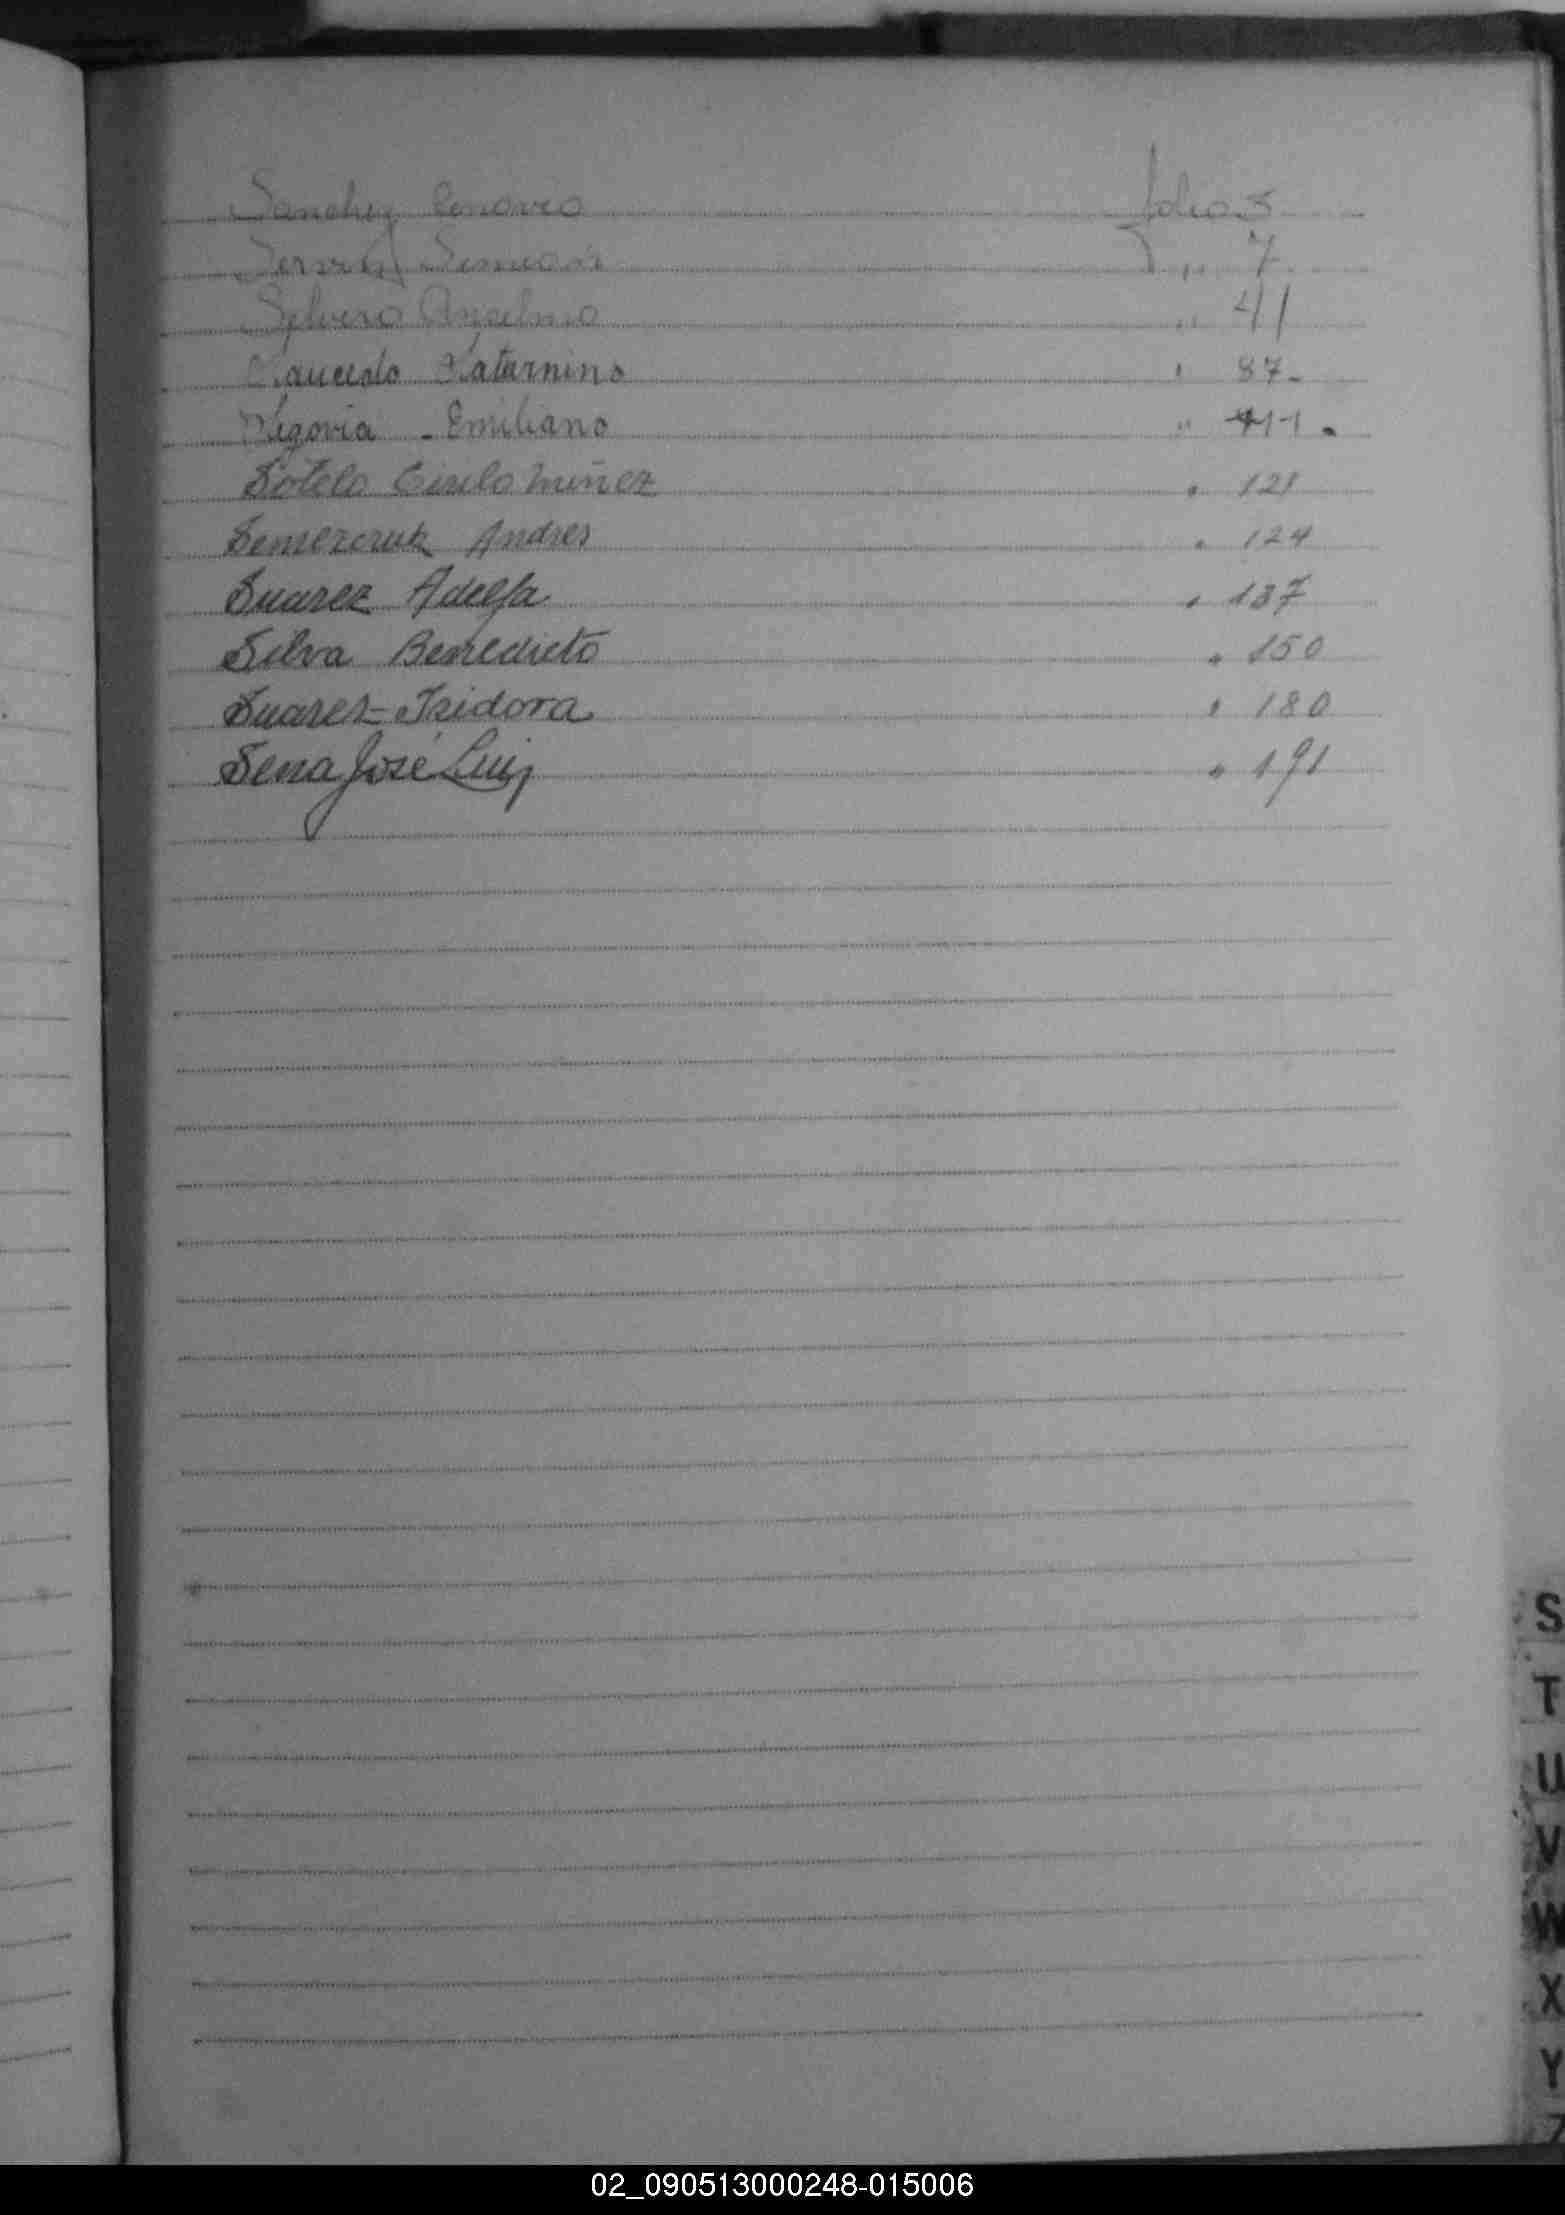 Sanchez Cenovio folio 5
Simeon „ 7
Silvero Anselmo „ 41
Saucedo Saturnino " 87-
Segovia - Emiliano " 111.
Sotelo Cirilo Núñez " 121
Semezcruk Andres " 124
Suarez Adelfa " 137
Silva Benedicto " 150
Suarez - Isidora " 180
Sena José Luis " 191
S
T
U
V
W
X
Y
Z
02_090513000248-015006